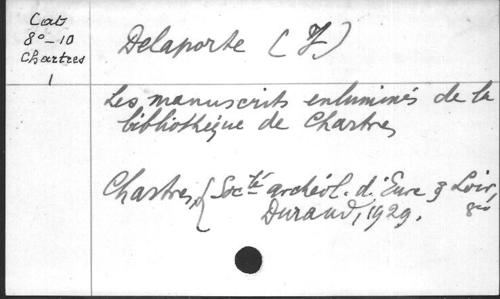 Cat
8°-10
Chartres
1
Delaporte (Y.)
Les manuscrits enluminés de la
bibliothèque de Chartres
Chartres, Socté archéol. d'Eure & Loir,
Durand, 1929. 8vo